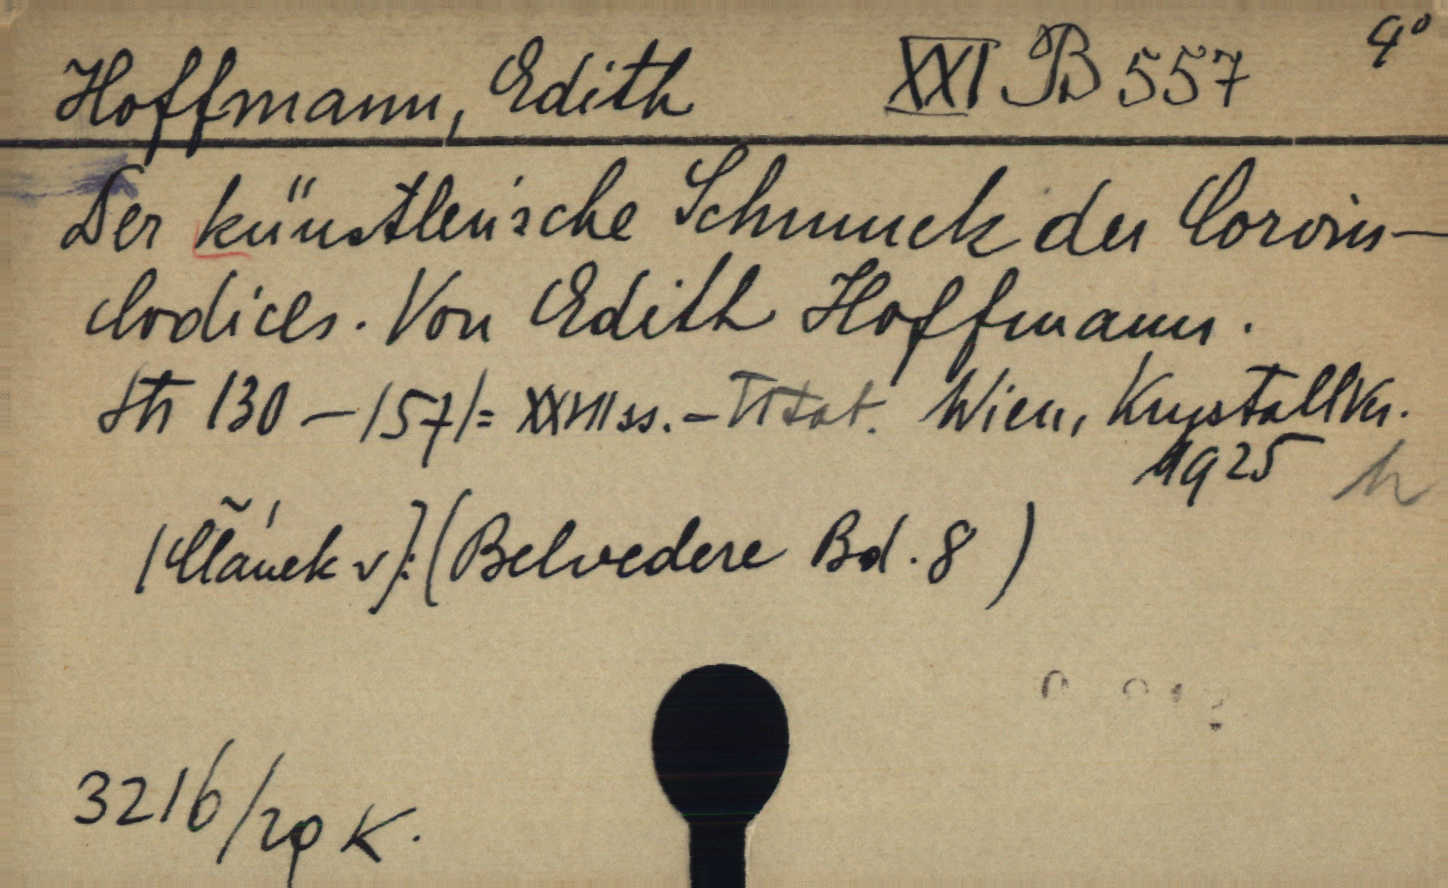 Hoffmann, Edith XXI B 557 4°
Der künstlerische Schmuck der Corvin-
Codices. Von Edith Hoffmann.
Str 130 – 157 = XXVIII ss. – VI tab. Wien, Krystall Vr.
1925
(Článek v): (Belvedere Bd. 8)
3216/29 K.